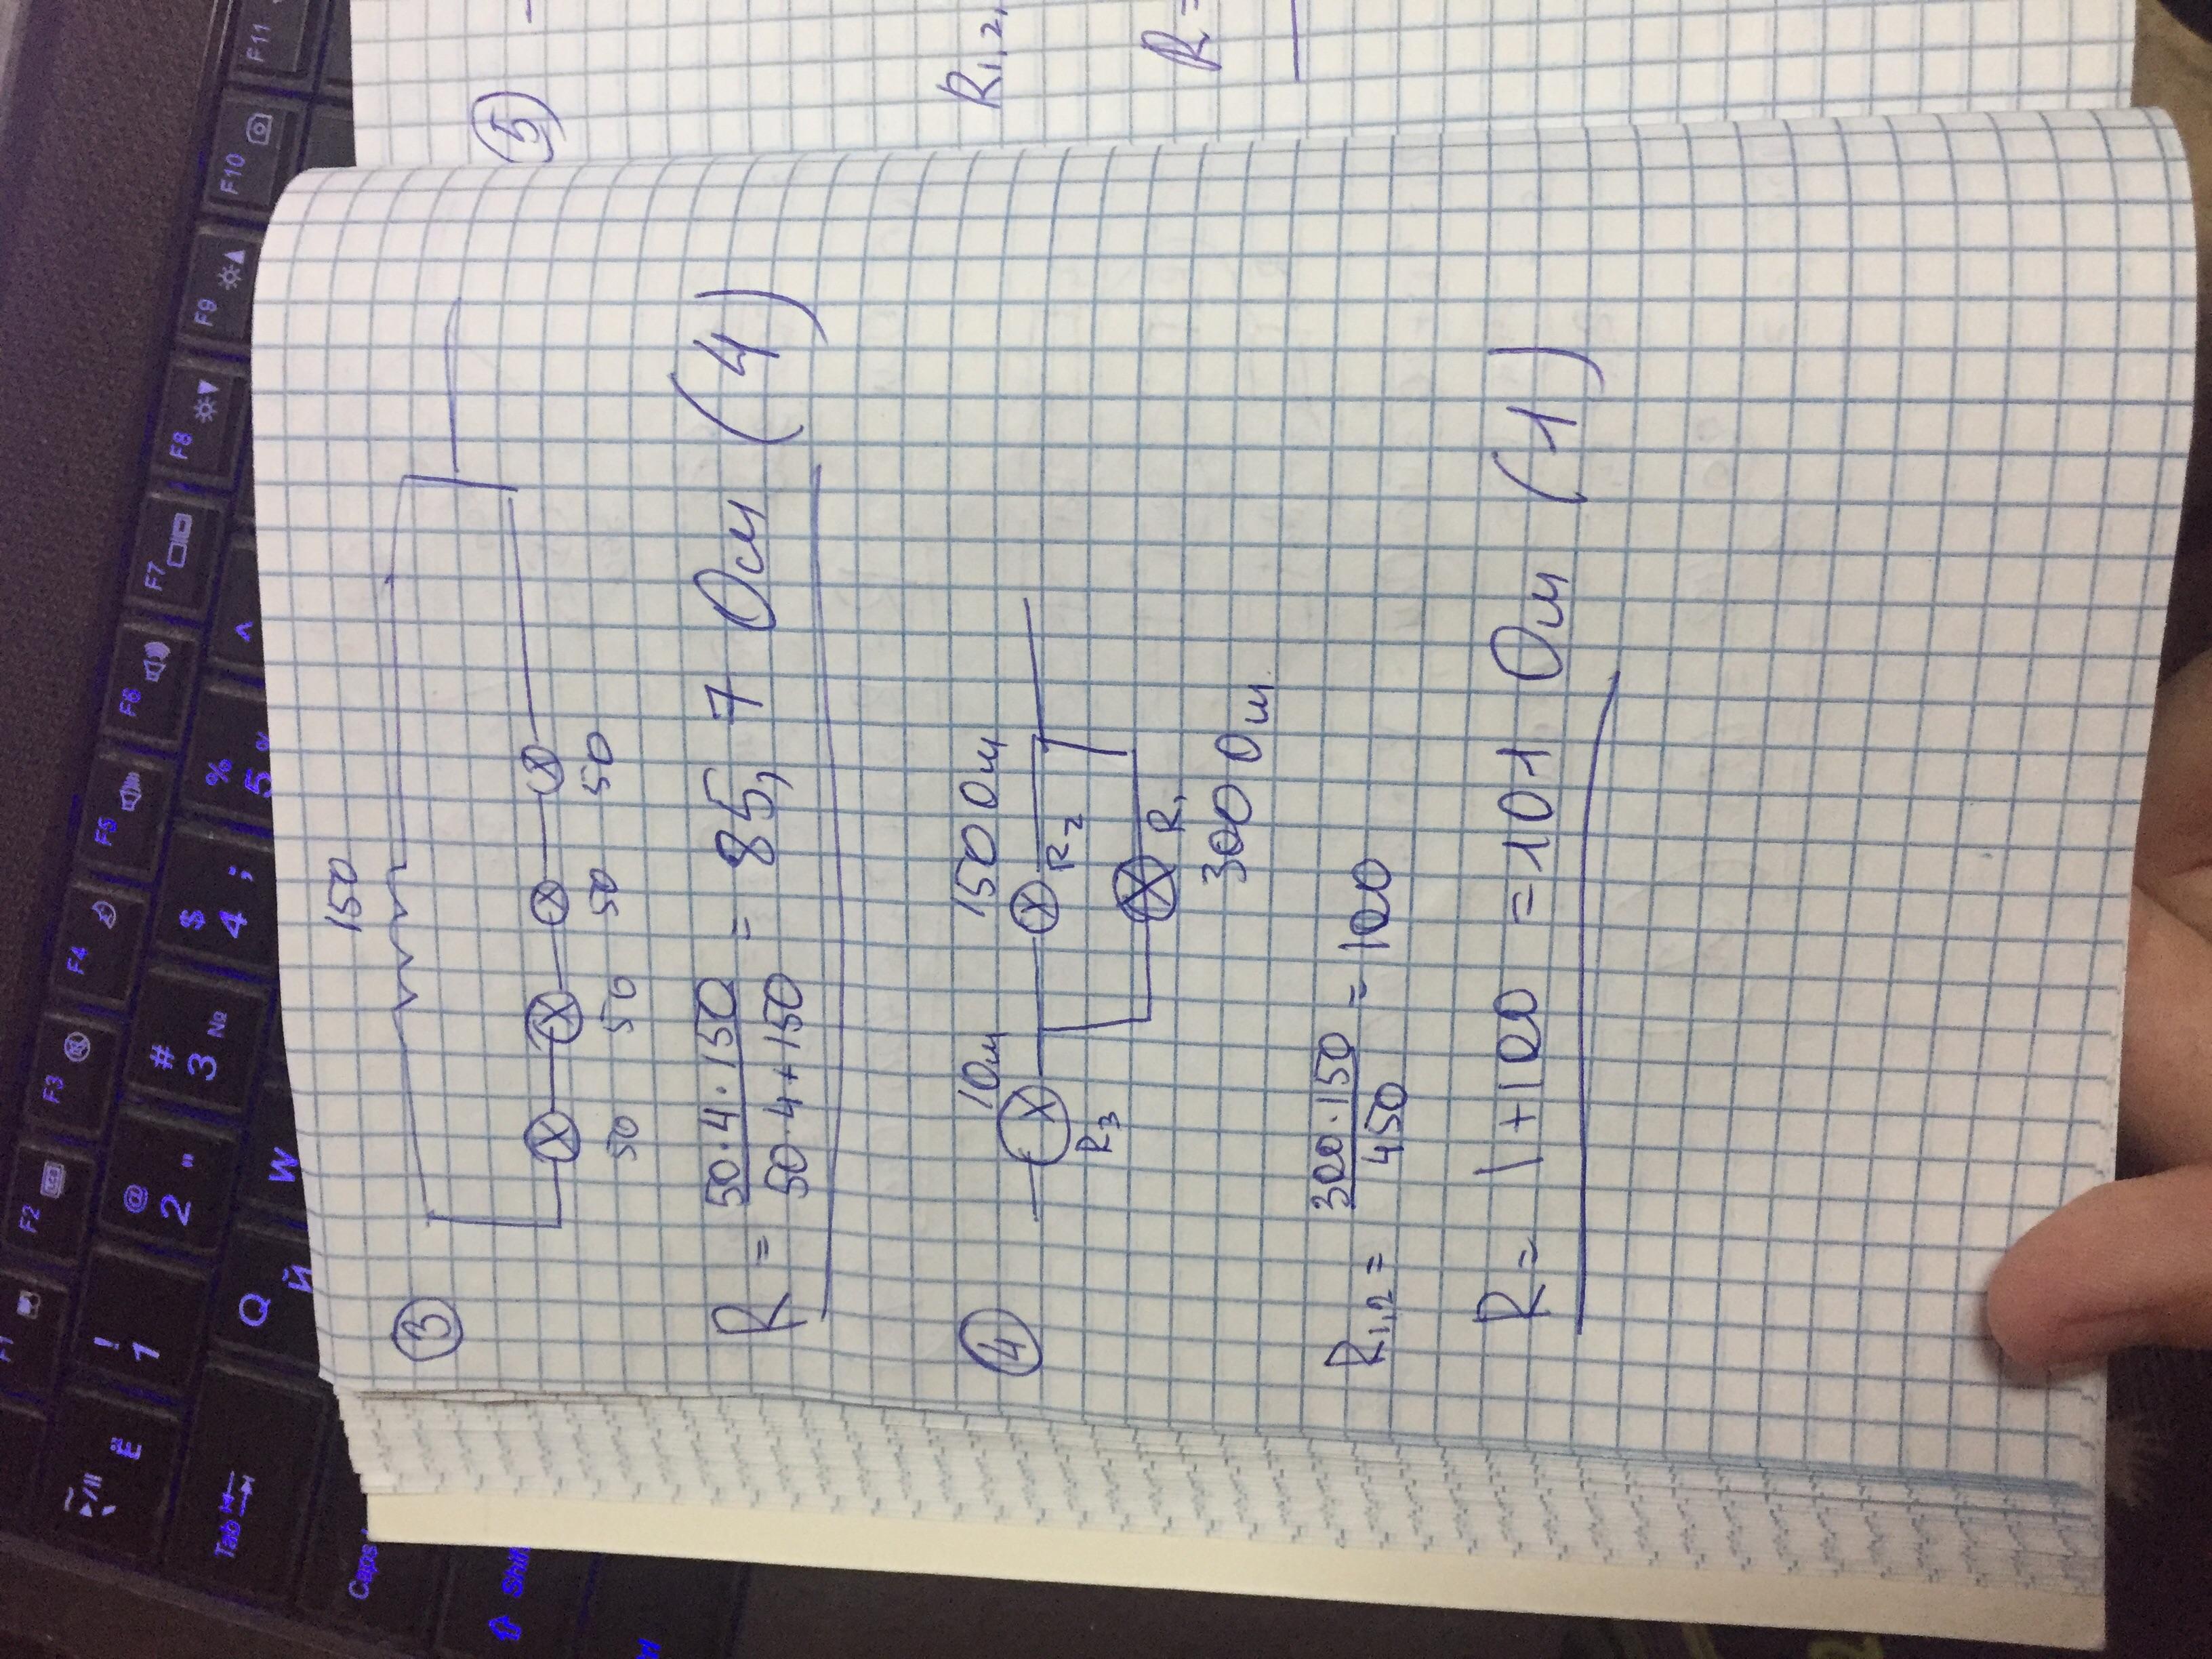 ③
150
50 50 50 50
R = 50·4·150 / 50·4+150 = 85,7 Ом (4)
④
1Ом 150Ом
R3 R2
R1
300Ом
R1,2 = 300·150 / 450 = 100
R = 1+100 = 101 Ом (1)
⑤
R1,2,
R =
F1 F2 F3 F4 F5 F6 F7 F8 F9 F10 F11
Ё ! 1 @ 2 " # 3 № $ 4 ; % 5 ^
Tab Q Й W
Caps
Shift